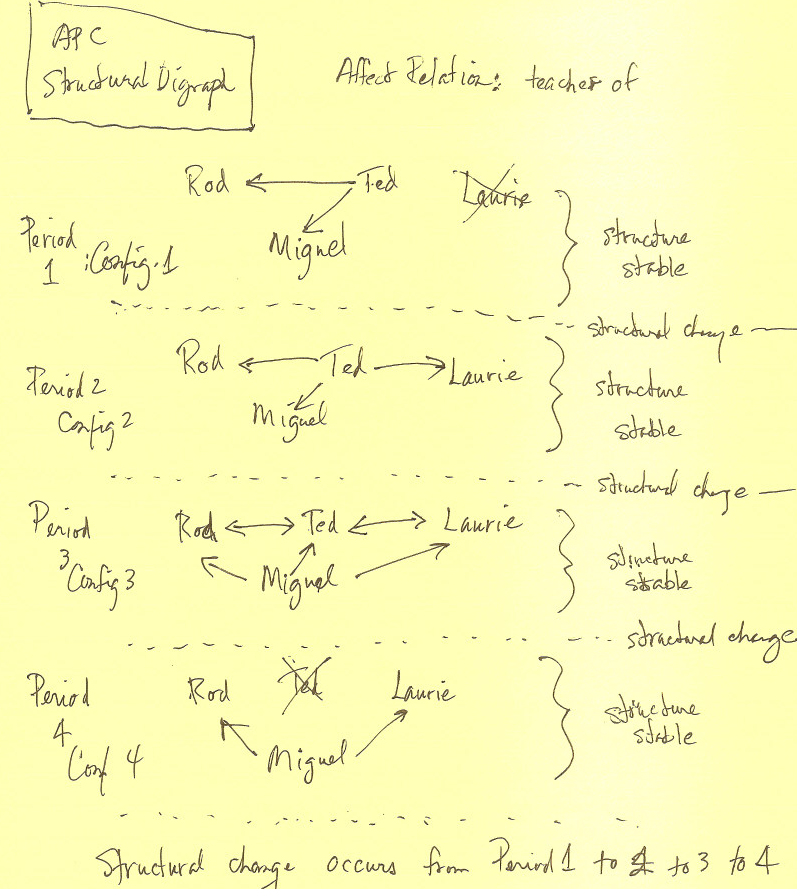 APC
Structural Digraph
Affect Relation: teacher of
Rod Ted Laurie
Miguel
Period
1 : Config. 1
structure
stable
structural change
Rod Ted Laurie
Miguel
Period 2
Config 2
structure
stable
structural change
Period
3 Config 3
Rod Ted Laurie
Miguel
structure
stable
structural change
Period
4
Conf 4
Rod Ted Laurie
Miguel
structure
stable
Structural change occurs from Period 1 to 2 to 3 to 4